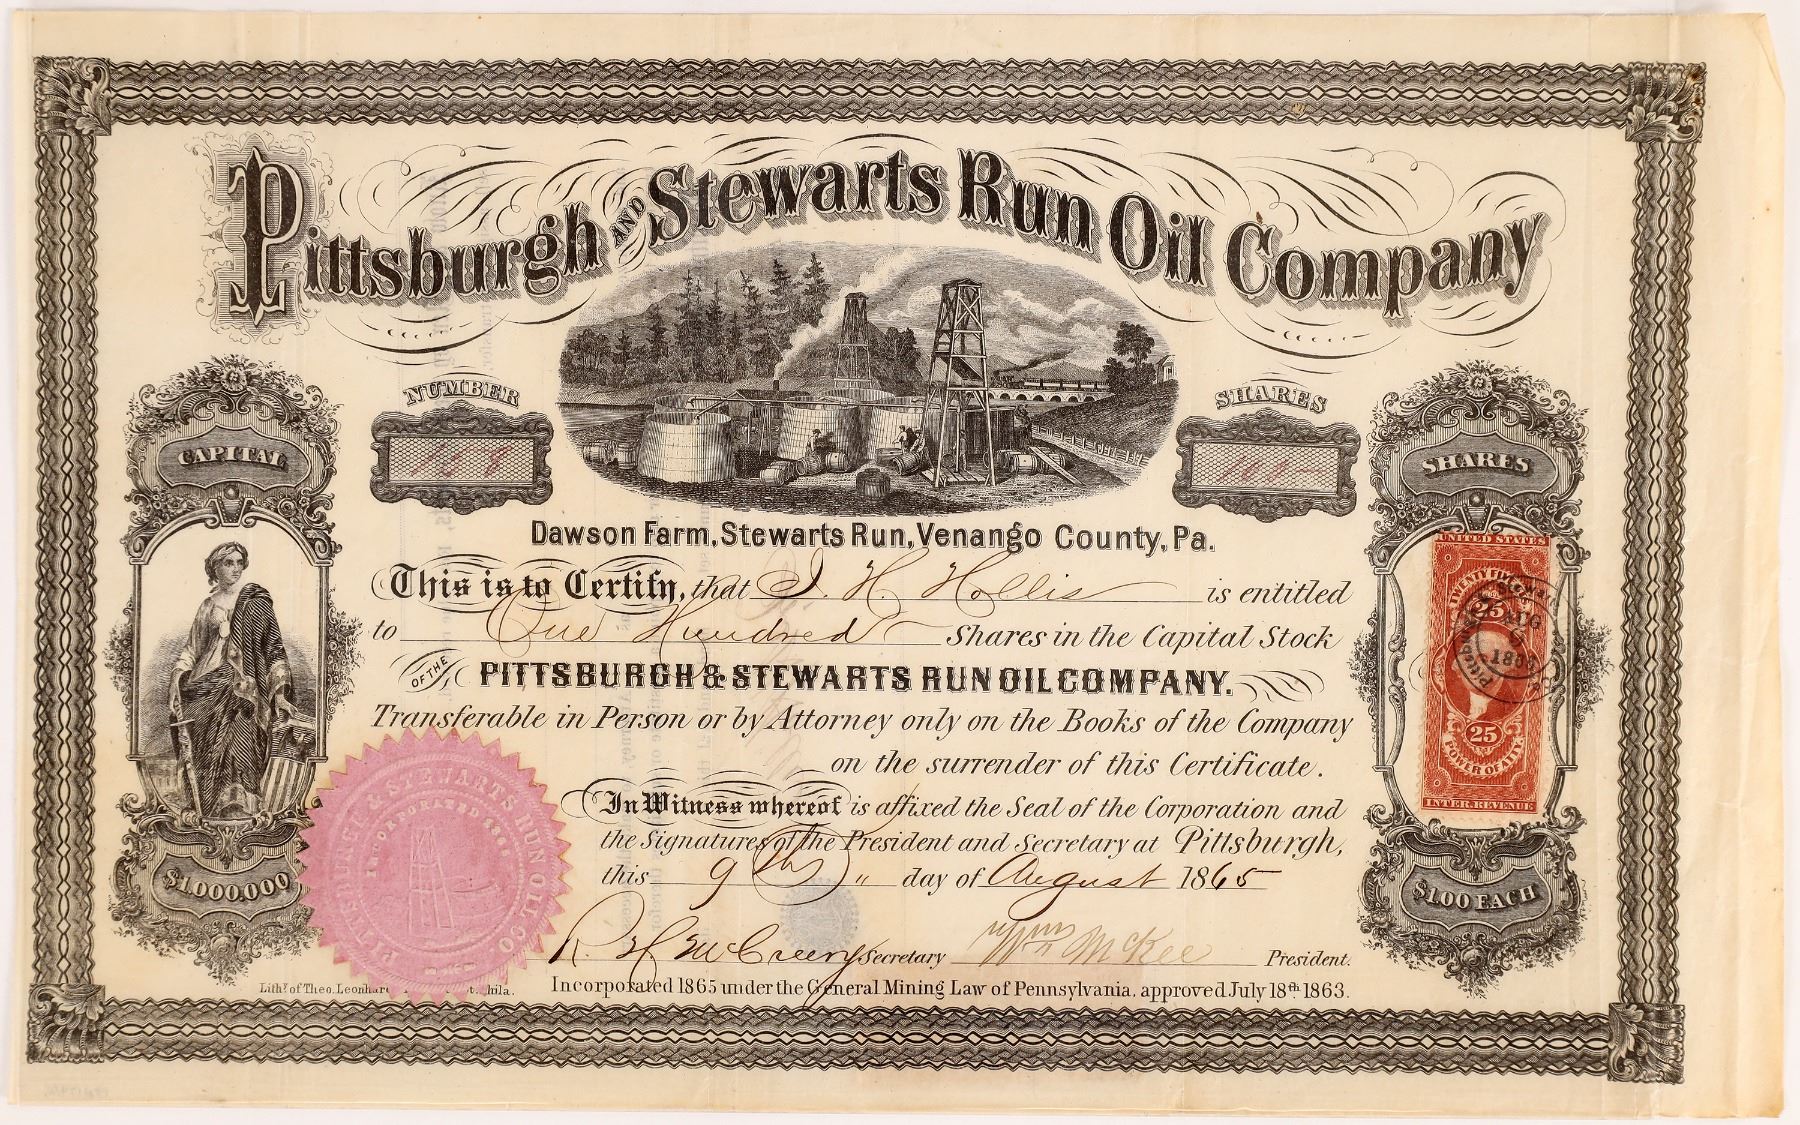 Pittsburgh AND Stewarts Run Oil Company
NUMBER
158
SHARES
100
CAPITAL
$1,000.000
SHARES
$1.00 EACH
Dawson Farm, Stewarts Run, Venango County, Pa.
This is to Certify, that J. H. Hollis is entitled
to One Hundred Shares in the Capital Stock
OF THE PITTSBURGH & STEWARTS RUN OIL COMPANY.
Transferable in Person or by Attorney only on the Books of the Company
on the surrender of this Certificate.
In Witness whereof is affixed the Seal of the Corporation and
the Signatures of the President and Secretary at Pittsburgh,
this 9th " day of August 1865
R. H. McCreery Secretary Wm McKee President.
Incorporated 1865 under the General Mining Law of Pennsylvania, approved July 18th 1863.
Lithy of Theo. Leonhar
hila.
PITTSBURGH & STEWARTS RUN OIL CO
INCORPORATED 1865
UNITED STATES
TWENTY FIVE
25
AUG
25
POWER OF ATTY.
INTER. REVENUE